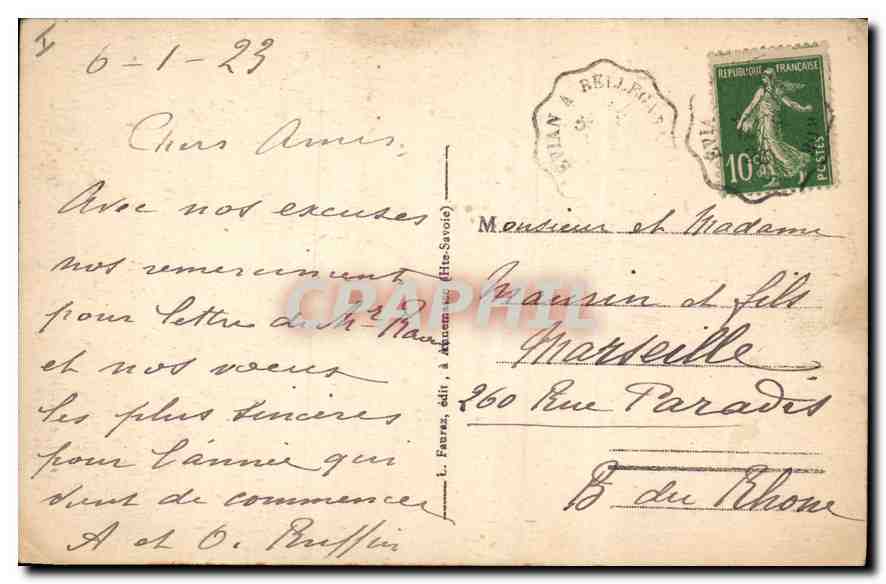 6-1-23
Chers Amis,
Avec nos excuses
nos remerciment
pour lettre de Mr
et nos vœux
les plus sincères
pour l'année qui
vient de commencer
A et O. Ruffin
L. Fauraz, édit, à Annemasse (Hte-Savoie)
EVIAN A BELLEGARDE
EVIA
REPUBLIQUE FRANÇAISE
10c
POSTES
Monsieur et Madame
Maurin et fils
Marseille
260 Rue Paradis
B du Rhone
CPAPHIL